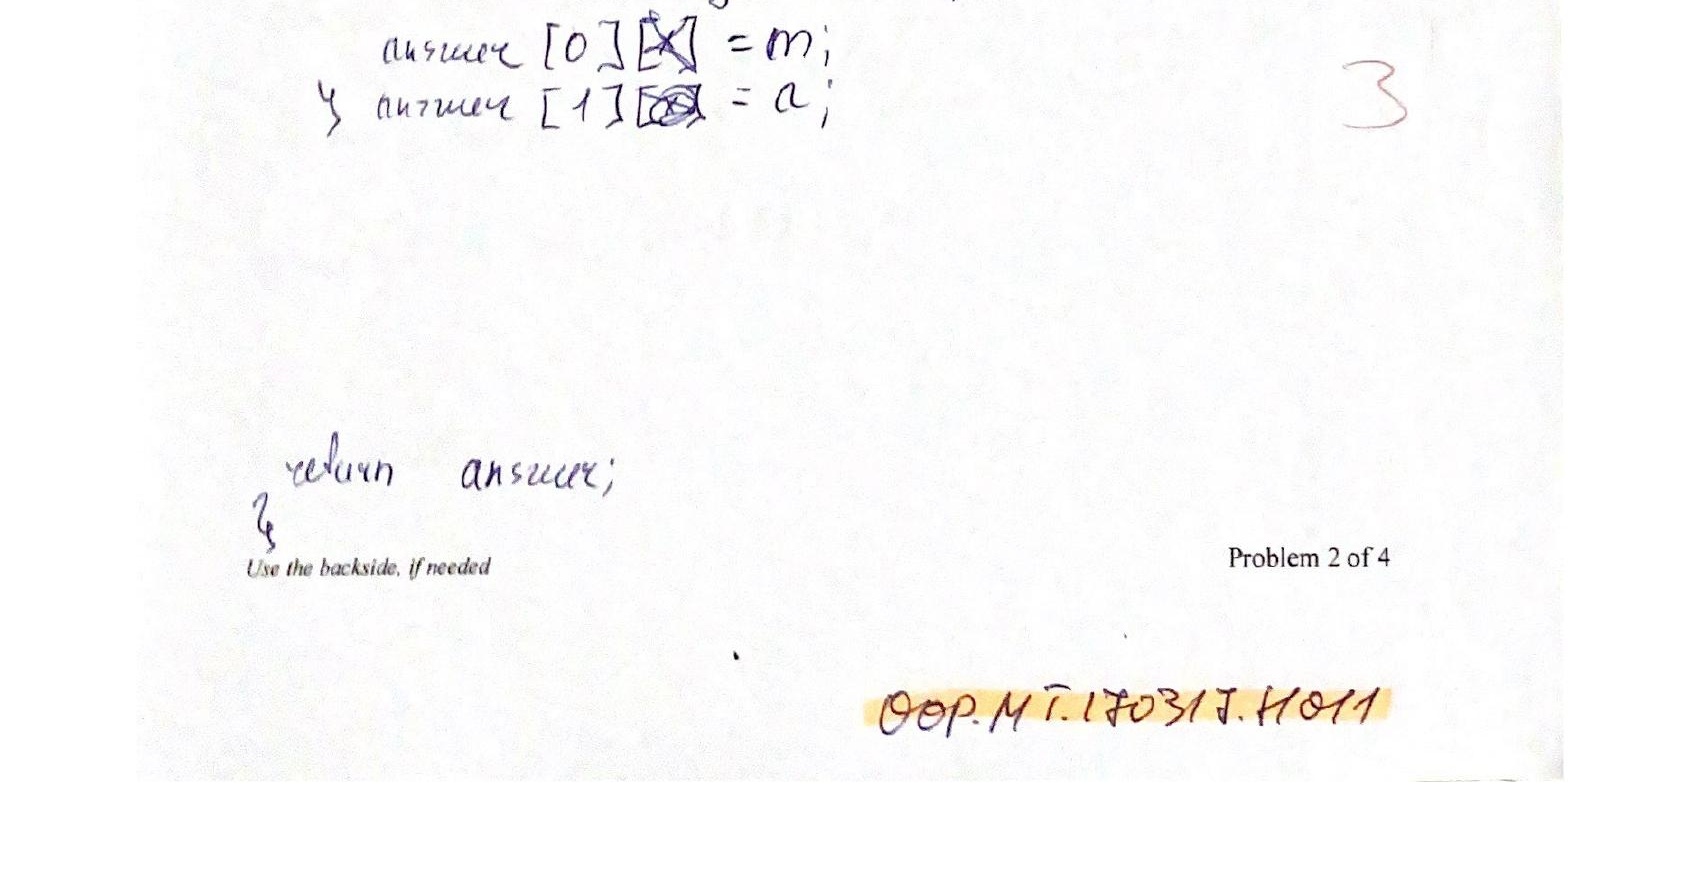 answer [0][] = m;
} answer [1][] = a;
3
return answer;
}
Use the backside, if needed
Problem 2 of 4
OOP.MT.170317.H011